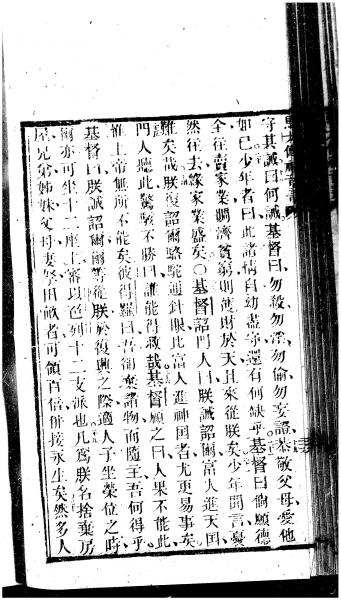 守其誡曰何誡基督曰勿殺勿淫勿偷勿妄證恭敬父母愛他
如己少年者曰此諸情自幼盡守還有何缺乎基督曰倘願德
全往賣家業賙濟貧窮則獲財於天且來從朕矣少年聞言憂
然往去緣家業盛矣○基督詔門人曰朕誠詔爾富人進天国
難矣哉朕復詔爾駱駝通針眼此富人進神国者尤更易事矣
門人聽此驚駭不勝曰誰能得救哉基督顧之曰人果不能此
惟上帝無所不能矣彼得羅曰吾儕棄諸物而隨主吾何得乎
基督曰朕誠詔爾爾等從朕於復興之際適人子坐榮位之時
爾亦可坐十二座上審以色列十二支派也凡爲朕名捨棄房
屋兄弟姊妹父母妻孥田畝者可領百倍併接永生矣然多人